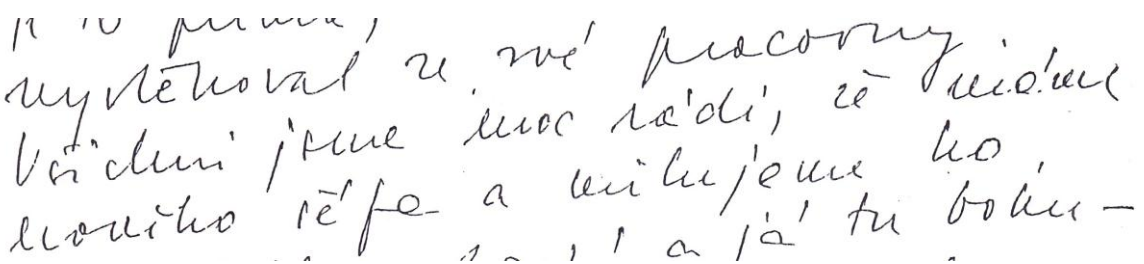 vystěhoval ze své pracovny
Všichni jsme moc rádi, že máme
nového šéfa a milujeme ho
a já tu bohu-